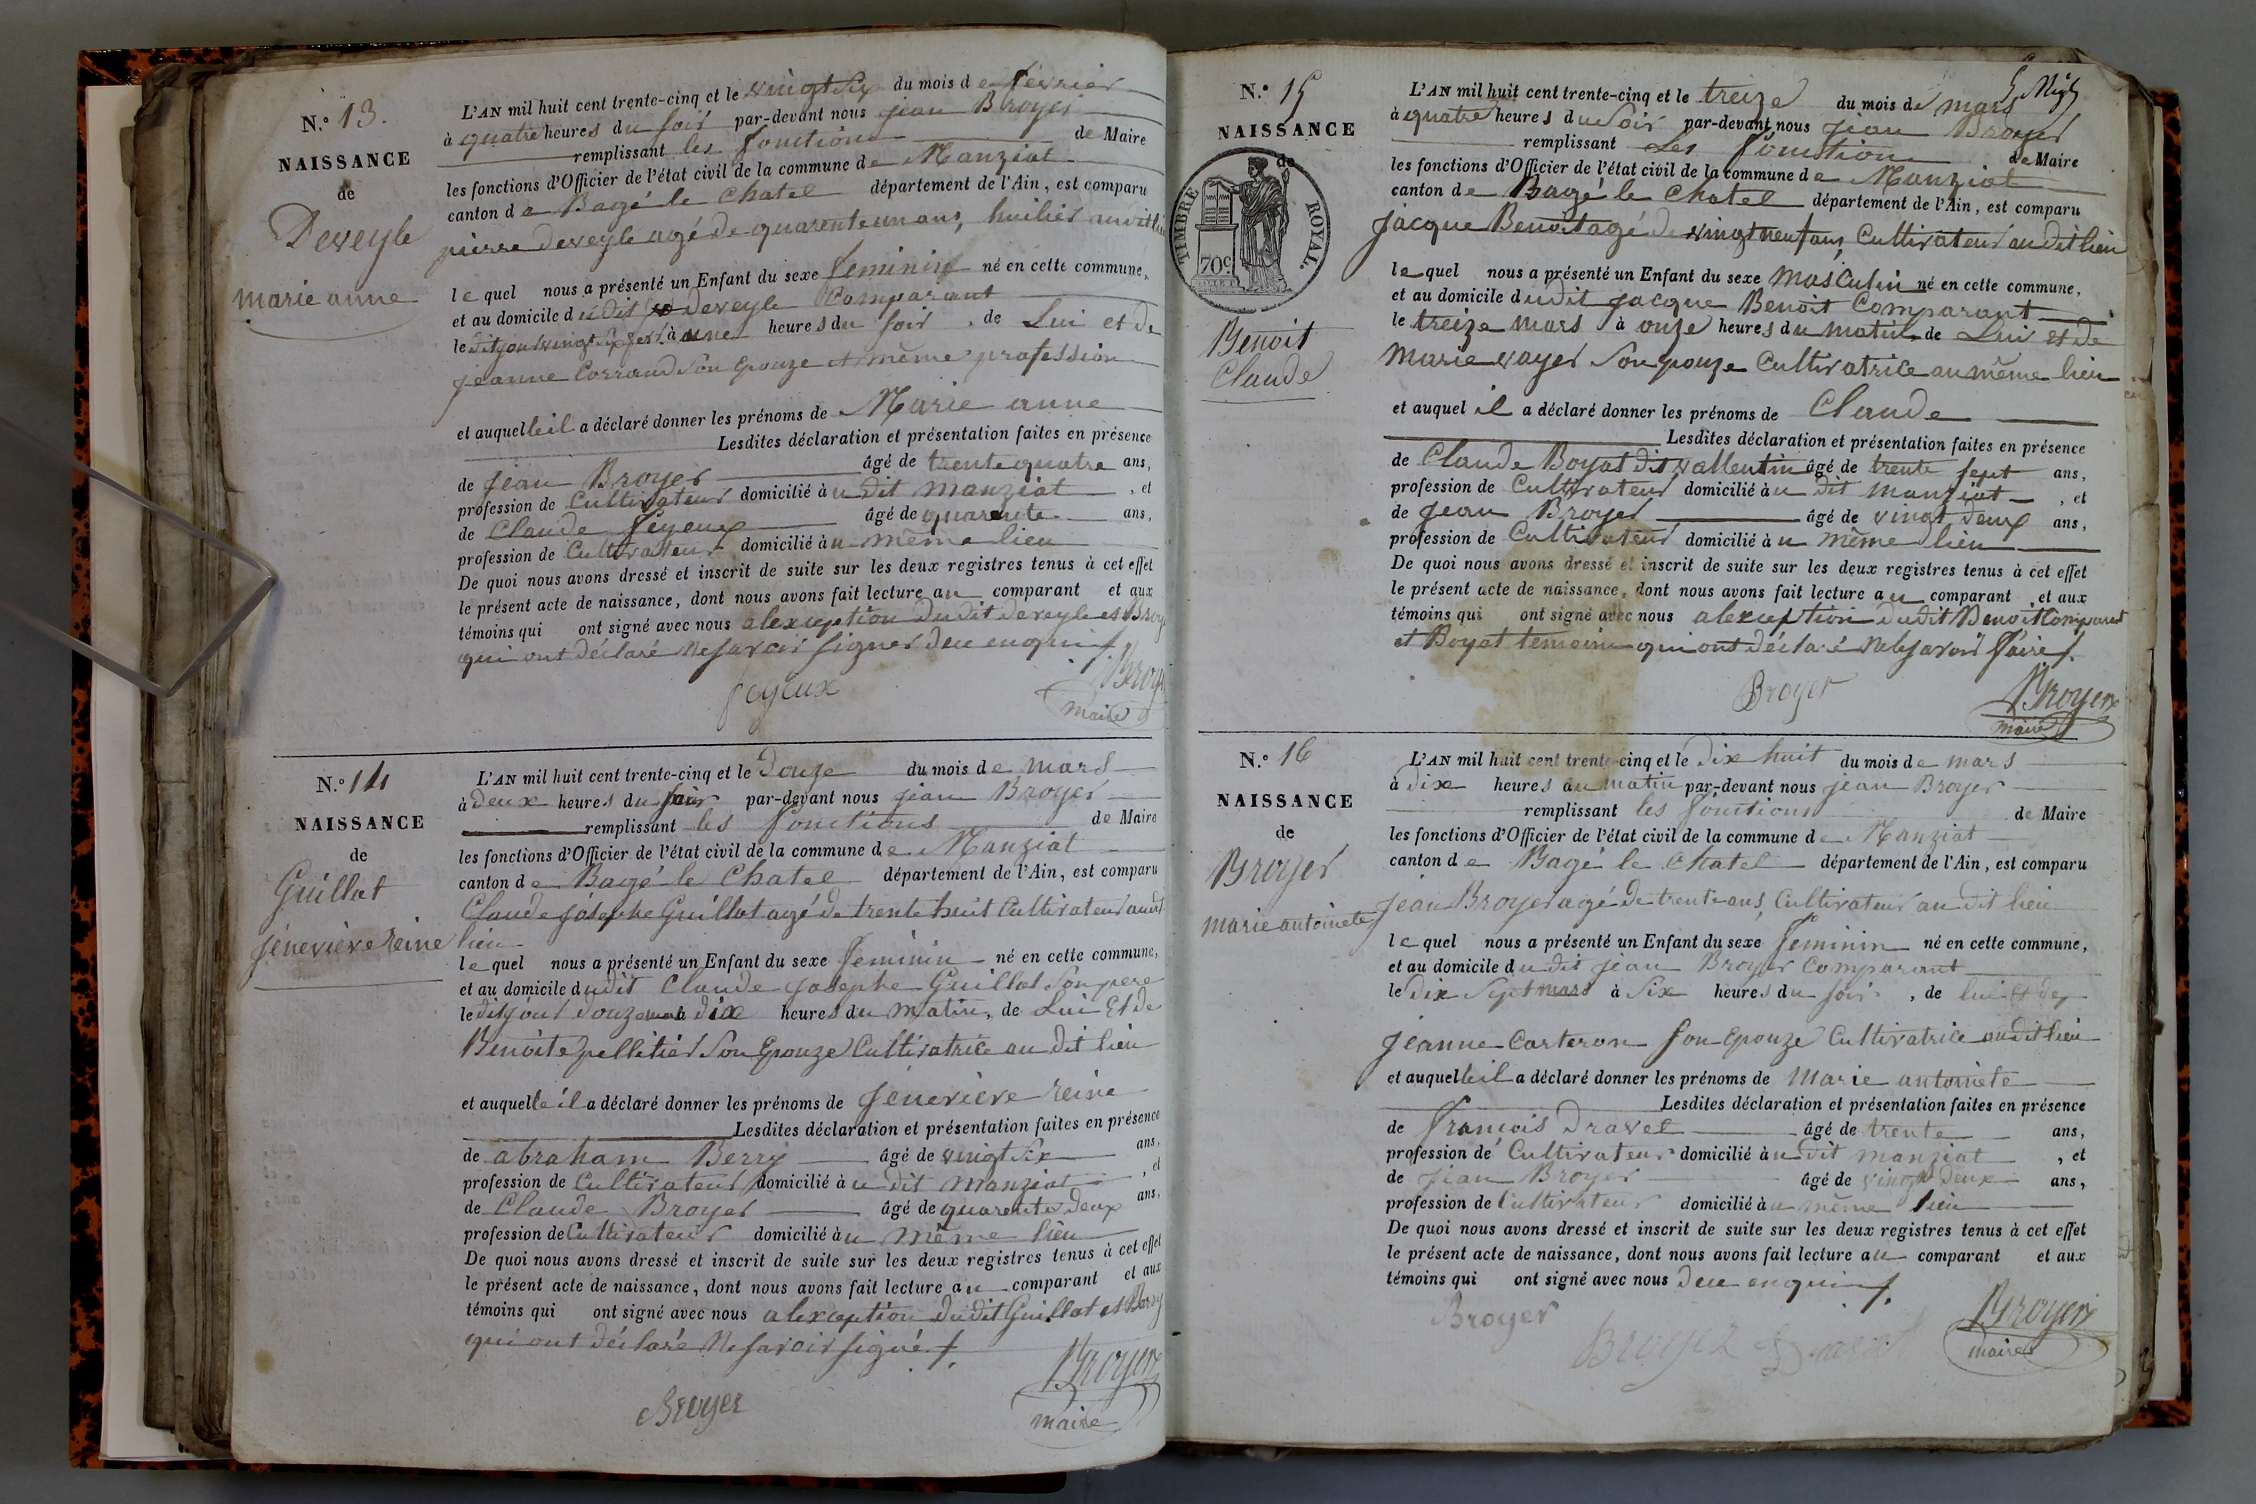 N.° 13.
NAISSANCE
de
Deveyle
marie anne
L'AN mil huit cent trente-cinq et le vingt six du mois de février
à quatre heures du soir par-devant nous jean Broyer
remplissant les fonctions de Maire
les fonctions d'Officier de l'état civil de la commune de Manziat
canton de Bagé le Chatel département de l'Ain, est comparu
pierre deveyle agé de quarente un ans, huilier au dit lieu
lequel nous a présenté un Enfant du sexe feminin né en cette commune,
et au domicile du dit deveyle Comparant
le dit jour vingt six fer. à une heures du soir, de Lui et de
jeanne Corrand Son Epouze et même profession
et auquelle il a déclaré donner les prénoms de Marie anne
Lesdites déclaration et présentation faites en présence
de jean Broyer âgé de trente quatre ans,
profession de Cultivateur domicilié au dit manziat, et
de Claude feyeux âgé de quarente ans,
profession de Cultivateur domicilié au même lieu
De quoi nous avons dressé et inscrit de suite sur les deux registres tenus à cet effet
le présent acte de naissance, dont nous avons fait lecture au comparant et aux
témoins qui ont signé avec nous alexception du dit deveyle et Broy
qui ont déclaré ne savoir signer deu enquis.
feyeux
Broye
maire
N.° 14
NAISSANCE
de
Guillot
jenevieve reine
L'AN mil huit cent trente-cinq et le Douze du mois de mars
à deux heures du soir par-devant nous jean Broyer
remplissant les fonctions de Maire
les fonctions d'Officier de l'état civil de la commune de Manziat
canton de Bagé le Chatel département de l'Ain, est comparu
Claude josephe Guillot agé de trente huit Cultivateur au dit
lieu
lequel nous a présenté un Enfant du sexe feminin né en cette commune,
et au domicile du dit Claude josephe Guillot Son pere
le dit jour douze mars dix heures du matin, de Lui Et de
Benoite pelletier Son Epouze Cultivatrice au dit lieu
et auquelle il a déclaré donner les prénoms de jenevieve reine
Lesdites déclaration et présentation faites en présence
de abraham Berry âgé de vingt six ans,
profession de Cultivateur domicilié au dit manziat, et
de Claude Broyer âgé de quarente deux ans,
profession de Cultivateur domicilié au même lieu
De quoi nous avons dressé et inscrit de suite sur les deux registres tenus à cet effet
le présent acte de naissance, dont nous avons fait lecture au comparant et aux
témoins qui ont signé avec nous alexception du dit Guillot et Berry
qui ont déclaré ne savoir signé.
Broyer
Broyer
maire
N.° 15
NAISSANCE
de
TIMBRE ROYAL.
70c.
Benoit
Claude
L'AN mil huit cent trente-cinq et le treize du mois de mars
à quatre heures du Soir par-devant nous jean Broyer
remplissant Les fonction de Maire
les fonctions d'Officier de l'état civil de la commune de Manziat
canton de Bagé le Chatel département de l'Ain, est comparu
jacque Benoit agé de vingt neuf ans Cultivateur au dit lieu
lequel nous a présenté un Enfant du sexe masculin né en cette commune,
et au domicile du dit jacque Benoit Comparant
le treize mars à onze heures du matin de Lui et de
Marie vayer Son epouze Cultivatrice au même lieu
et auquel il a déclaré donner les prénoms de Claude
Lesdites déclaration et présentation faites en présence
de Claude Boyat dit vallentin âgé de trente sept ans,
profession de Cultivateur domicilié au dit manziat, et
de jean Broyer âgé de vingt deux ans,
profession de Cultivateur domicilié au même lieu
De quoi nous avons dressé et inscrit de suite sur les deux registres tenus à cet effet
le présent acte de naissance, dont nous avons fait lecture au comparant et aux
témoins qui ont signé avec nous alexception du dit Benoit Comparant
et Boyat temoin qui ont déclaré ne le savoir faire.
Broyer
Broyer
maire
N.° 16
NAISSANCE
de
Broyer
marie antoinete
L'AN mil huit cent trente-cinq et le dix huit du mois de mars
à dix heures au matin par-devant nous jean Broyer
remplissant les fonctions de Maire
les fonctions d'Officier de l'état civil de la commune de Manziat
canton de Bagé le Chatel département de l'Ain, est comparu
jean Broyer agé de trente ans, Cultivateur au dit lieu
lequel nous a présenté un Enfant du sexe feminin né en cette commune,
et au domicile du dit jean Broyer Comparant
le dix Sept mars à Six heures du soir, de lui et de
jeanne Carteron Son Epouze Cultivatrice au dit lieu
et auquelle il a déclaré donner les prénoms de marie antoinete
Lesdites déclaration et présentation faites en présence
de françois Dravet âgé de trente ans,
profession de Cultivateur domicilié au dit manziat, et
de jean Broyer âgé de vingt deux ans,
profession de Cultivateur domicilié au même lieu
De quoi nous avons dressé et inscrit de suite sur les deux registres tenus à cet effet
le présent acte de naissance, dont nous avons fait lecture au comparant et aux
témoins qui ont signé avec nous deu enquis.
Broyer
Broyer
Broyer
maire